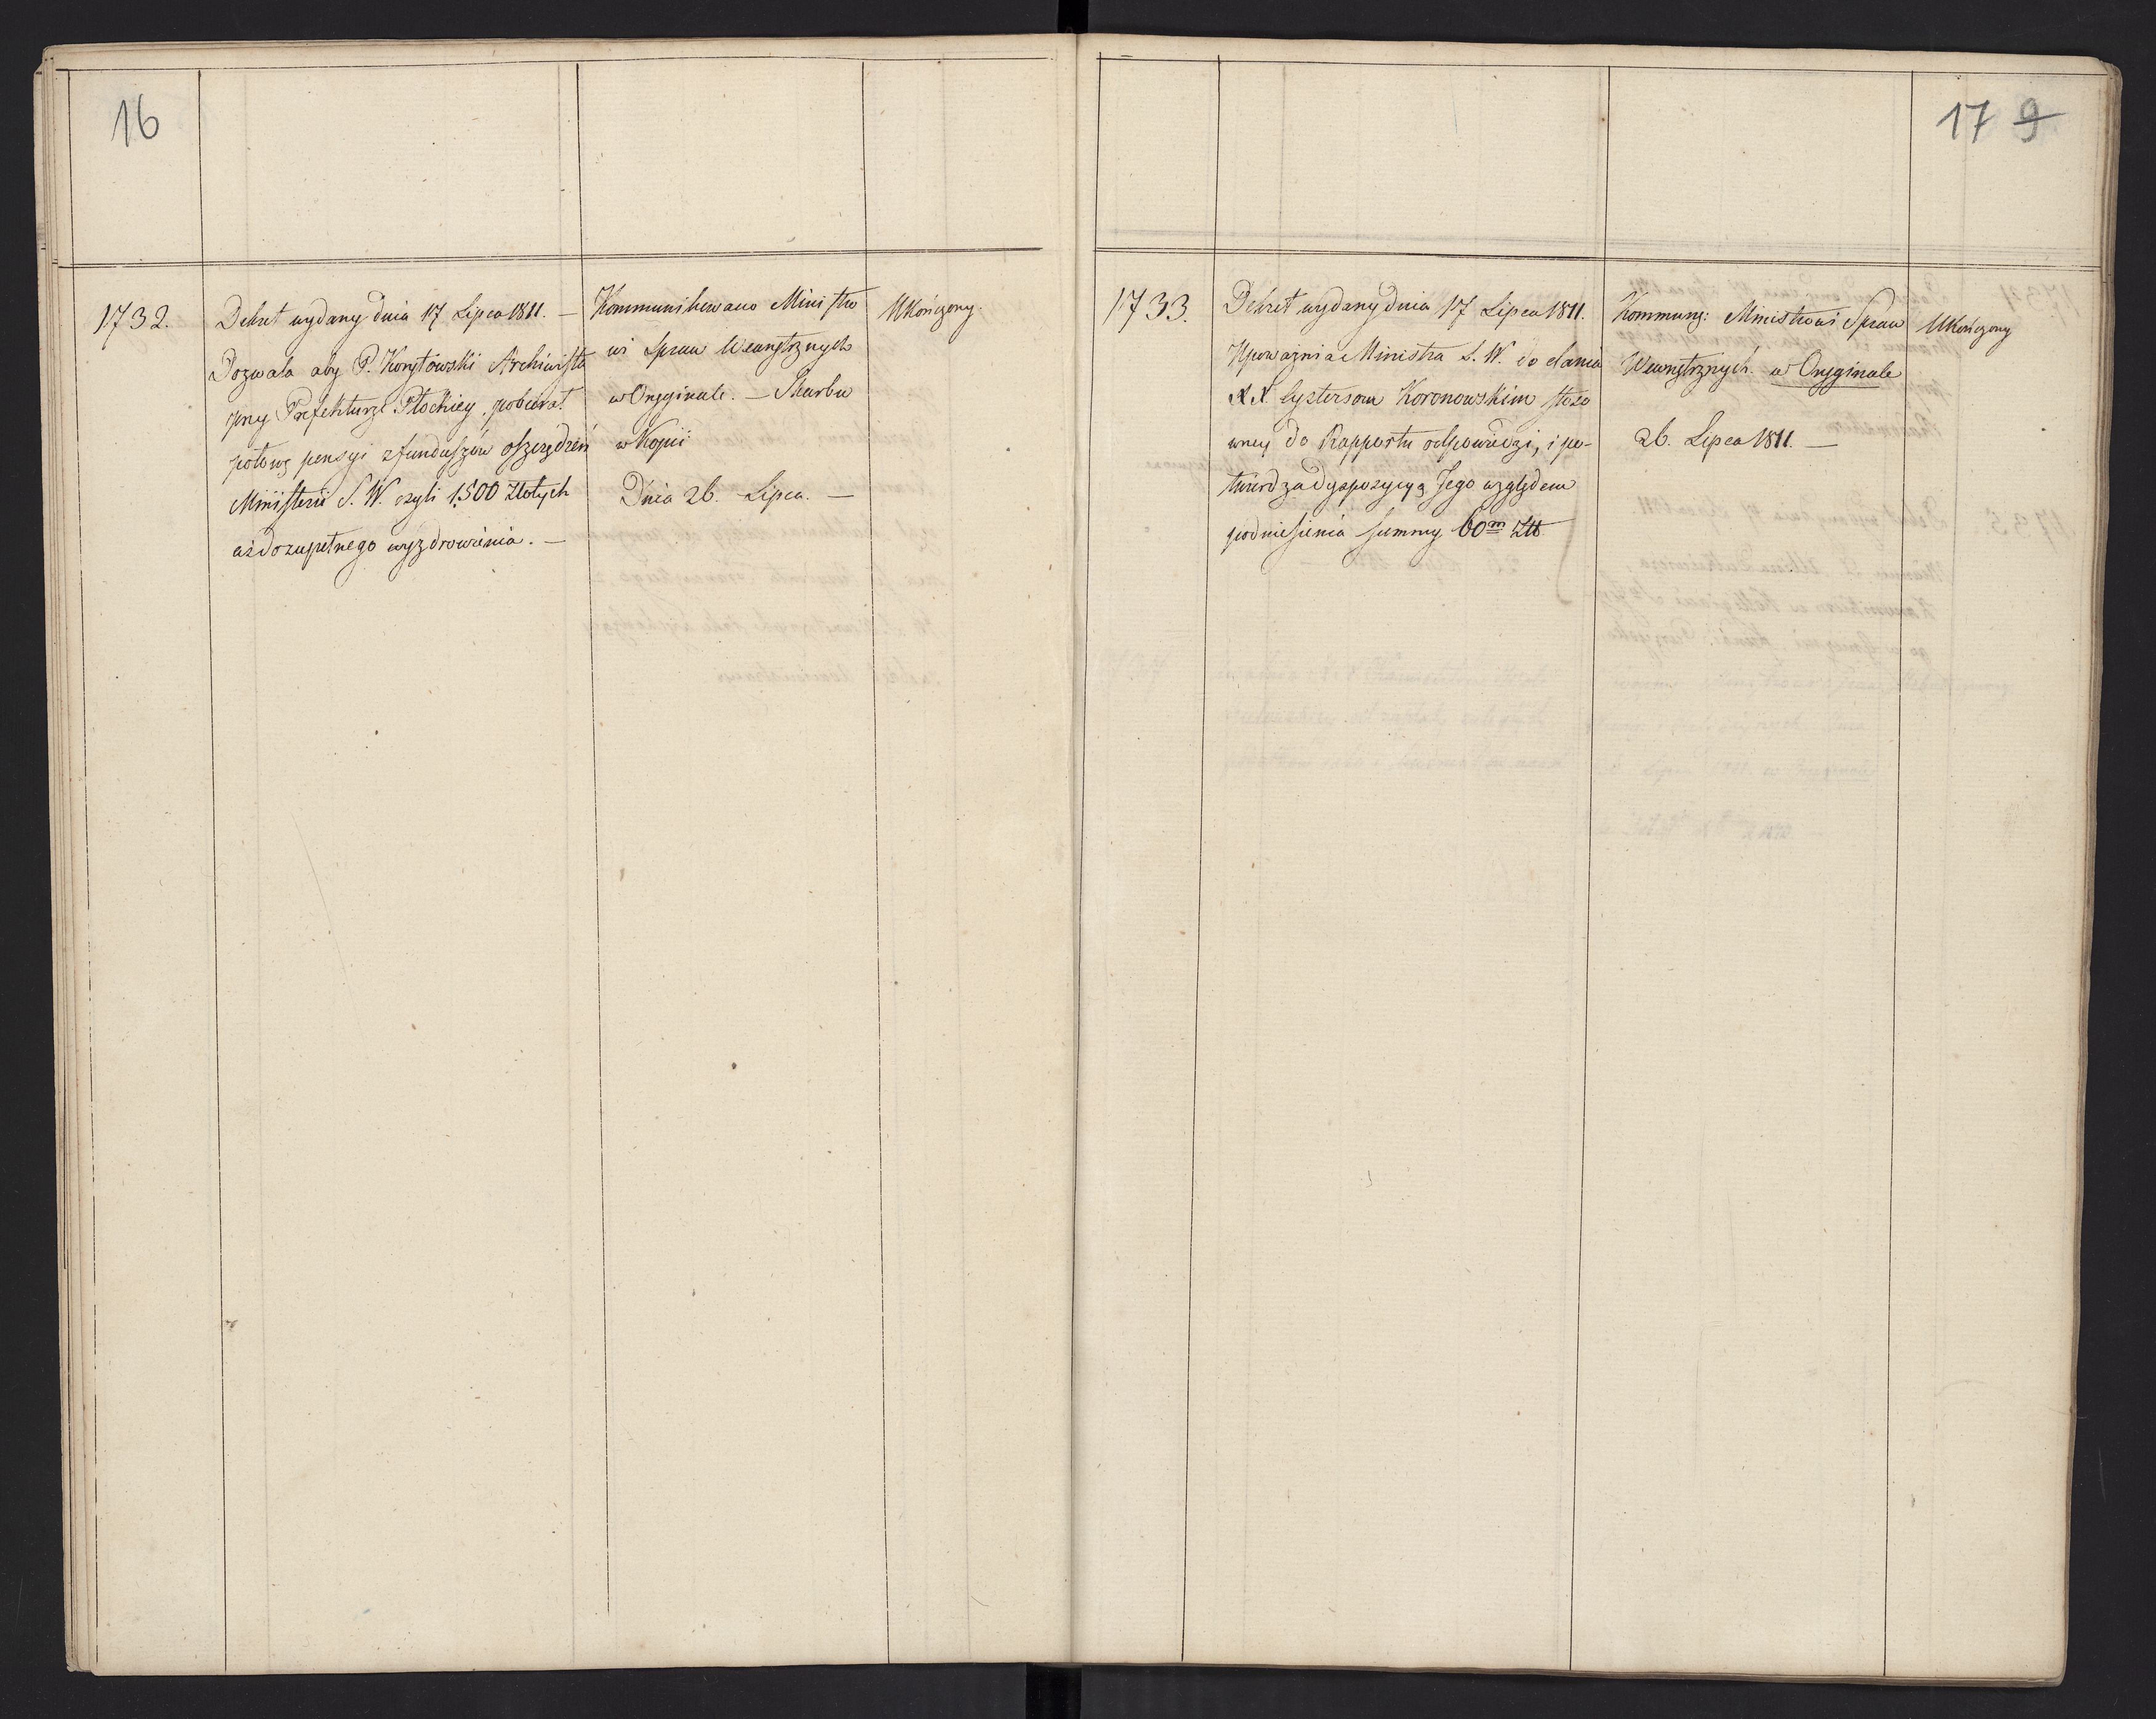 16
1732.
Dekret wydany dnia 17 Lipca 1811. —
Dozwala aby P. Korytowski Archiwista
przy Prefekturze Płockiey pobierał
połowę pensyi z funduszów oszczędzeń
Ministerii S. W. czyli 1500 Złotych
aż do zupełnego wyzdrowienia. —
Kommunikowano Ministro
wi Spraw Wewnętrznych
w Oryginale. — Skarbu
w Kopii
Dnia 26. Lipca. —
Ukończony.
17 9
1733.
Dekret wydany dnia 17 Lipca 1811.
Upoważnia Ministra S. W. do dania
X X Cystersom Koronowskim stoso
wney do Rapportu odpowiedzi, i po-
twierdza dyspozycyą Jego względem
podniesienia summy 60m Złł
Kommunz: Ministrowi Spraw
Wewnętrznych w Oryginale
26. Lipca 1811. —
Ukończony